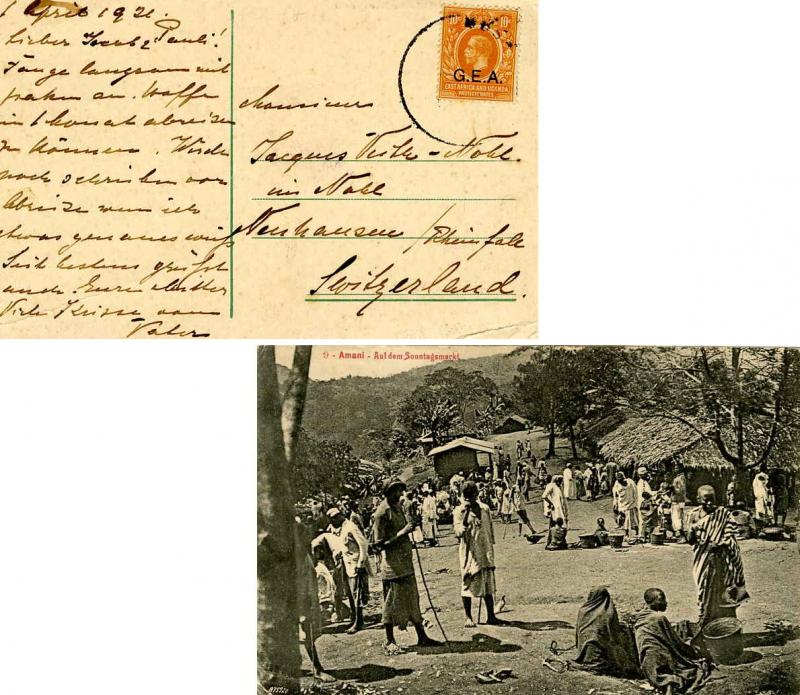 1 April 1921.
Lieber Jacob & Pauli!
Fange langsam mit
packen an. Hoffe
in 1 Monat abreisen
zu können. Werde
noch schreiben vor
Abreise wenn ich
etwas genaues weiss
Seid bestens grüsst
und Eure Mutter
Viele Küsse vom
Vater
Monsieur
Jacques
im Nohl
Neuhausen / Rheinfall
Switzerland.
10c 10c
G.E.A.
EAST AFRICA AND UGANDA
PROTECTORATES
9 - Amani - Auf dem Sonntagsmarkt